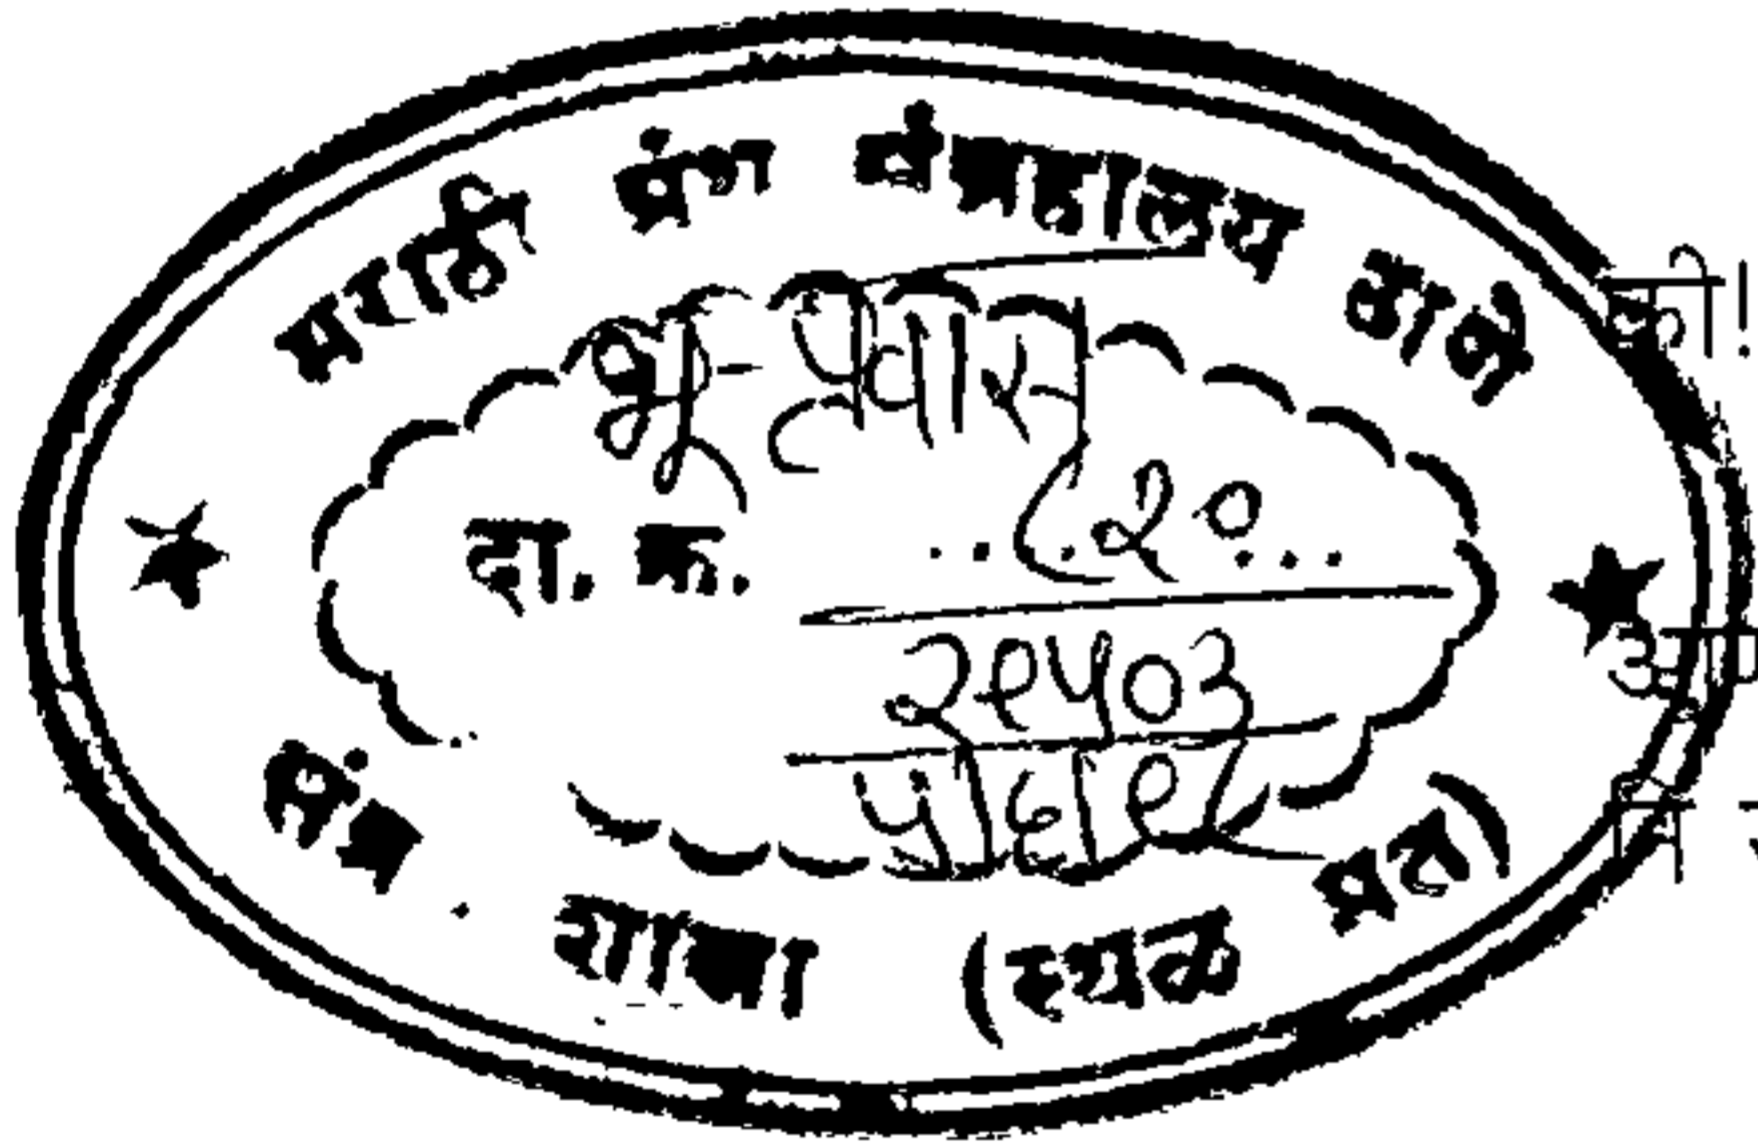 मराठी ग्रंथ संग्रहालय ठाणे
भू-प्रवास
दा. क्र. ....८२०...
२९५०३
५/६/९८
संद्र. शाखा (स्थळ प्रत)
की!